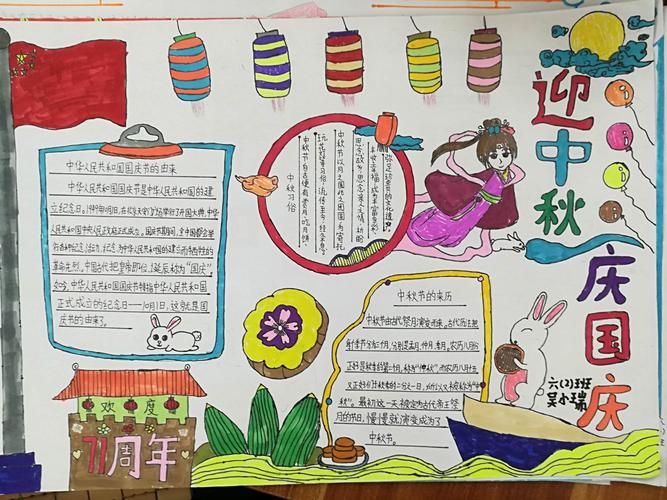 迎中秋
庆国庆
中华人民共和国国庆节的由来
中华人民共和国国庆节是中华人民共和国的建
立纪念日。1949年10月1日,在北京天安门广场举行了开国大典,中华
人民共和国中央人民政府正式成立。国庆节期间,全中国都会举
行各种纪念活动,纪念为中华人民共和国的建立而牺牲的
革命先烈。中国古代把皇帝即位、诞辰称为“国庆”。
如今,中华人民共和国国庆节特指中华人民共和国
正式成立的纪念日——10月1日,这就是国
庆节的由来了。
中秋习俗
中秋节自古便有赏月、吃月饼、
玩花灯等习俗,流传至今,经久不息。
中秋节以月之圆兆人之团圆,为寄托
思念故乡,思念亲人之情,祈盼
丰收幸福,成为丰富多彩、
弥足珍贵的文化遗产。
中秋节的来历
中秋节由古代祭月演变而来。古代历法把
每个季节分为三个月,分别是孟月,仲月,季月。农历八月份
正好是秋季的第二个月,称为“仲秋”。而农历八月十五
又正好为仲秋季的二分之一日,所以又被称为“中
秋”。最初这一天被定为古代帝王祭
月的节日,慢慢就演变成为了
中秋节。
六(2)班
吴小瑞
欢度
71周年